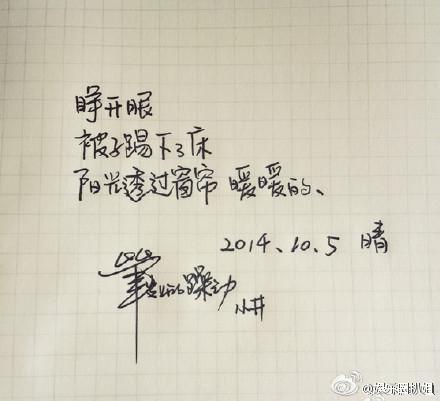 睁开眼
被子踢下了床
阳光透过窗帘 暖暖的、
2014.10.5 晴
的躁动
小井